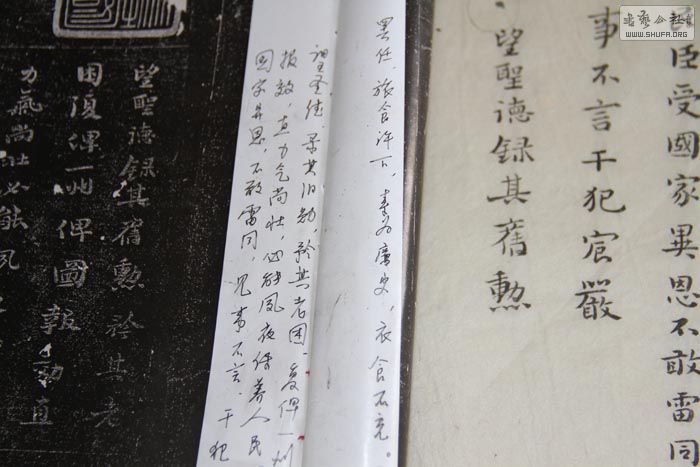 臣受國家異恩不敢雷同
事不言干犯宸嚴
望聖德録其舊勲
書藝公社
WWW.SHUFA.ORG
罢任,旅食许下,素为廉吏,衣食不充。
望圣德,录其旧勋,矜其老困,复俾一州
报效,直力气尚壮,必能夙夜保养人民
国家异恩,不敢雷同 见事不言 干犯
望聖德録其舊勲矜其老
困復俾一州俾圖報効直
力氣尚壯必能夙